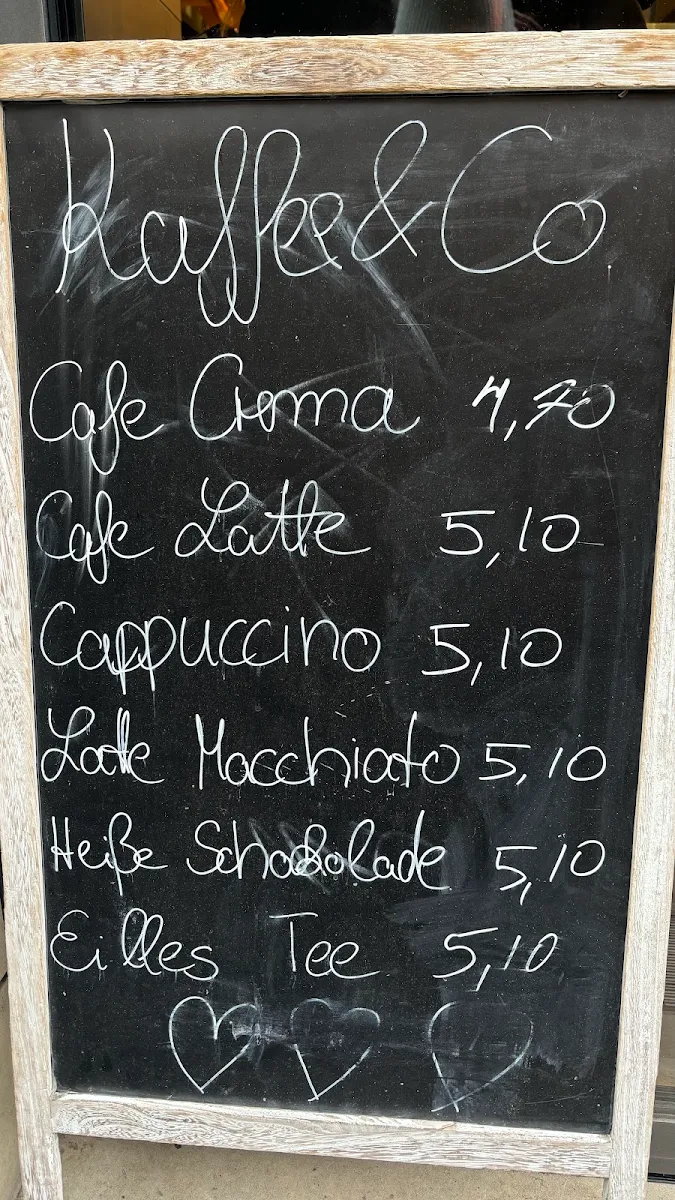 Kaffee & Co
Cafe Crema 4,70
Cafe Latte 5,10
Cappuccino 5,10
Latte Macchiato 5,10
Heiße Schokolade 5,10
Eilles Tee 5,10